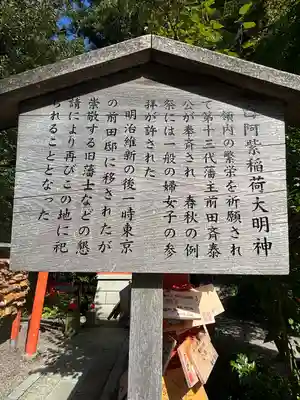 阿紫稲荷大明神
領内の繁栄を祈願され
て第十三代藩主前田斉泰
公が奉斉され 春秋の例
祭には一般の婦女子の参
拝が許された
明治維新の後一時東京
の前田邸に移されたが
崇敬する旧藩士などの懇
請により再びこの地に祀
られることとなった